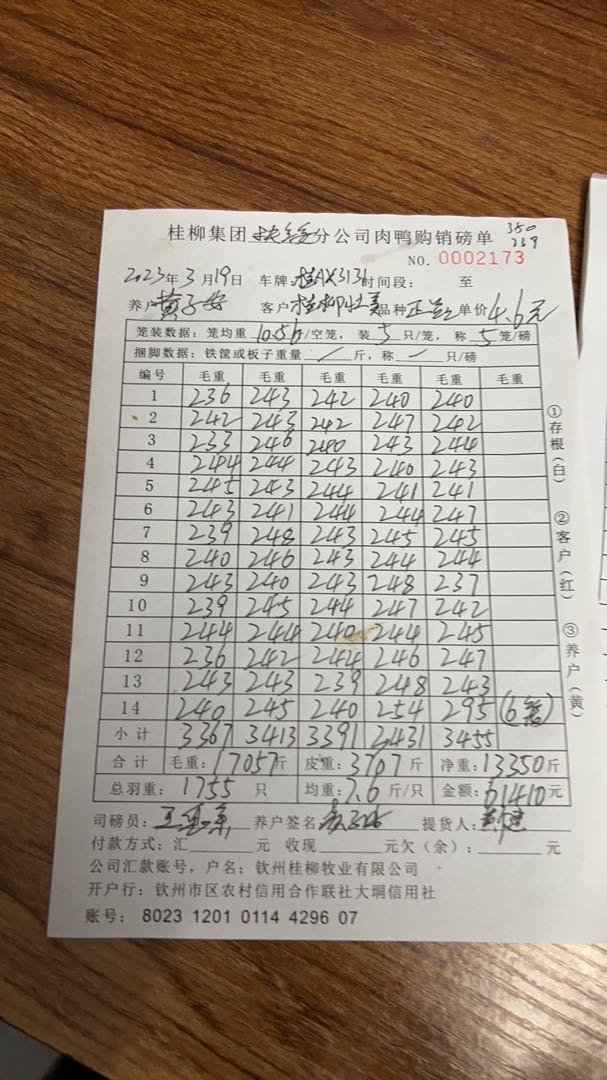 350
239
桂柳集团扶绥分公司肉鸭购销磅单
NO. 0002173
2023年3月19日 车牌:桂AX3131时间段: 至
养户黄子安 客户桂柳 品种正 单价4.6元
笼装数据: 笼均重10.56/空笼, 装5只/笼, 称5笼/磅
捆脚数据: 铁筐或板子重量/斤, 称/只/磅
编号 毛重 毛重 毛重 毛重 毛重 毛重
1 236 243 242 240 240
2 242 243 242 247 242
3 233 246 240 243 244
4 244 244 243 240 243
5 245 243 244 241 241
6 243 241 244 244 247
7 239 248 243 245 245
8 240 246 243 244 244
9 243 240 243 248 237
10 239 245 244 247 242
11 244 244 240 244 245
12 236 242 244 246 247
13 243 243 239 248 243
14 240 245 240 254 295 (6笼)
小计 3367 3413 3391 3431 3455
合计 毛重:17057斤 皮重:3707斤 净重:13350斤
总羽重: 1755 只 均重:7.6斤/只 金额:61410元
司磅员: 养户签名 提货人:
付款方式:汇 元 收现 元欠(余): 元
公司汇款账号, 户名: 钦州桂柳牧业有限公司
开户行: 钦州市区农村信用合作联社大垌信用社
账号: 8023 1201 0114 4296 07
①存根(白)
②客户(红)
③养户(黄)